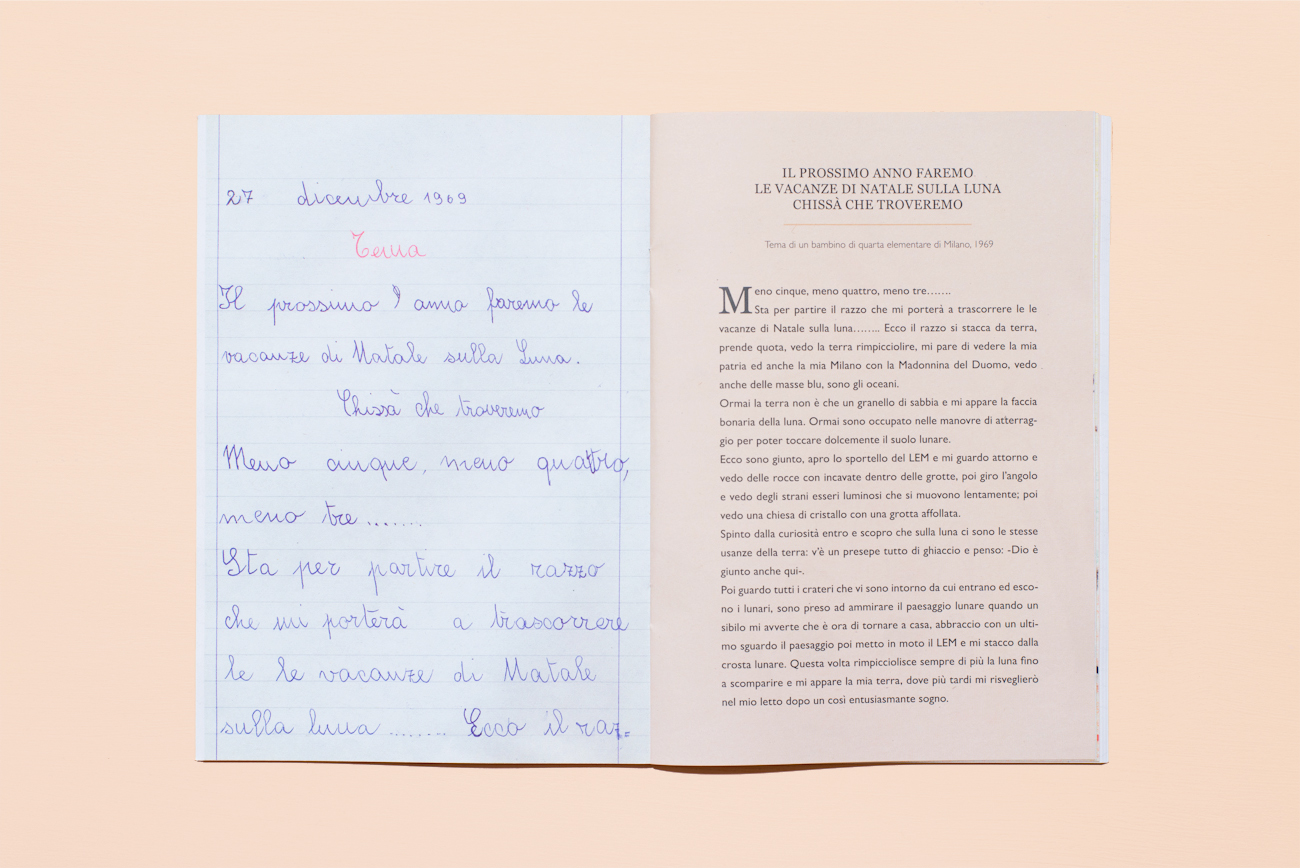 27 dicembre 1969
Tema
Il prossimo anno faremo le
vacanze di Natale sulla Luna.
Chissà che troveremo
Meno cinque, meno quattro,
meno tre.......
Sta per partire il razzo
che mi porterà a trascorrere
le le vacanze di Natale
sulla luna........ Ecco il raz=
IL PROSSIMO ANNO FAREMO
LE VACANZE DI NATALE SULLA LUNA
CHISSÀ CHE TROVEREMO
Tema di un bambino di quarta elementare di Milano, 1969
Meno cinque, meno quattro, meno tre.......
Sta per partire il razzo che mi porterà a trascorrere le le
vacanze di Natale sulla luna........ Ecco il razzo si stacca da terra,
prende quota, vedo la terra rimpicciolire, mi pare di vedere la mia
patria ed anche la mia Milano con la Madonnina del Duomo, vedo
anche delle masse blu, sono gli oceani.
Ormai la terra non è che un granello di sabbia e mi appare la faccia
bonaria della luna. Ormai sono occupato nelle manovre di atterrag-
gio per poter toccare dolcemente il suolo lunare.
Ecco sono giunto, apro lo sportello del LEM e mi guardo attorno e
vedo delle rocce con incavate dentro delle grotte, poi giro l'angolo
e vedo degli strani esseri luminosi che si muovono lentamente; poi
vedo una chiesa di cristallo con una grotta affollata.
Spinto dalla curiosità entro e scopro che sulla luna ci sono le stesse
usanze della terra: v'è un presepe tutto di ghiaccio e penso: -Dio è
giunto anche qui-.
Poi guardo tutti i crateri che vi sono intorno da cui entrano ed esco-
no i lunari, sono preso ad ammirare il paesaggio lunare quando un
sibilo mi avverte che è ora di tornare a casa, abbraccio con un ulti-
mo sguardo il paesaggio poi metto in moto il LEM e mi stacco dalla
crosta lunare. Questa volta rimpicciolisce sempre di più la luna fino
a scomparire e mi appare la mia terra, dove più tardi mi risveglierò
nel mio letto dopo un così entusiasmante sogno.